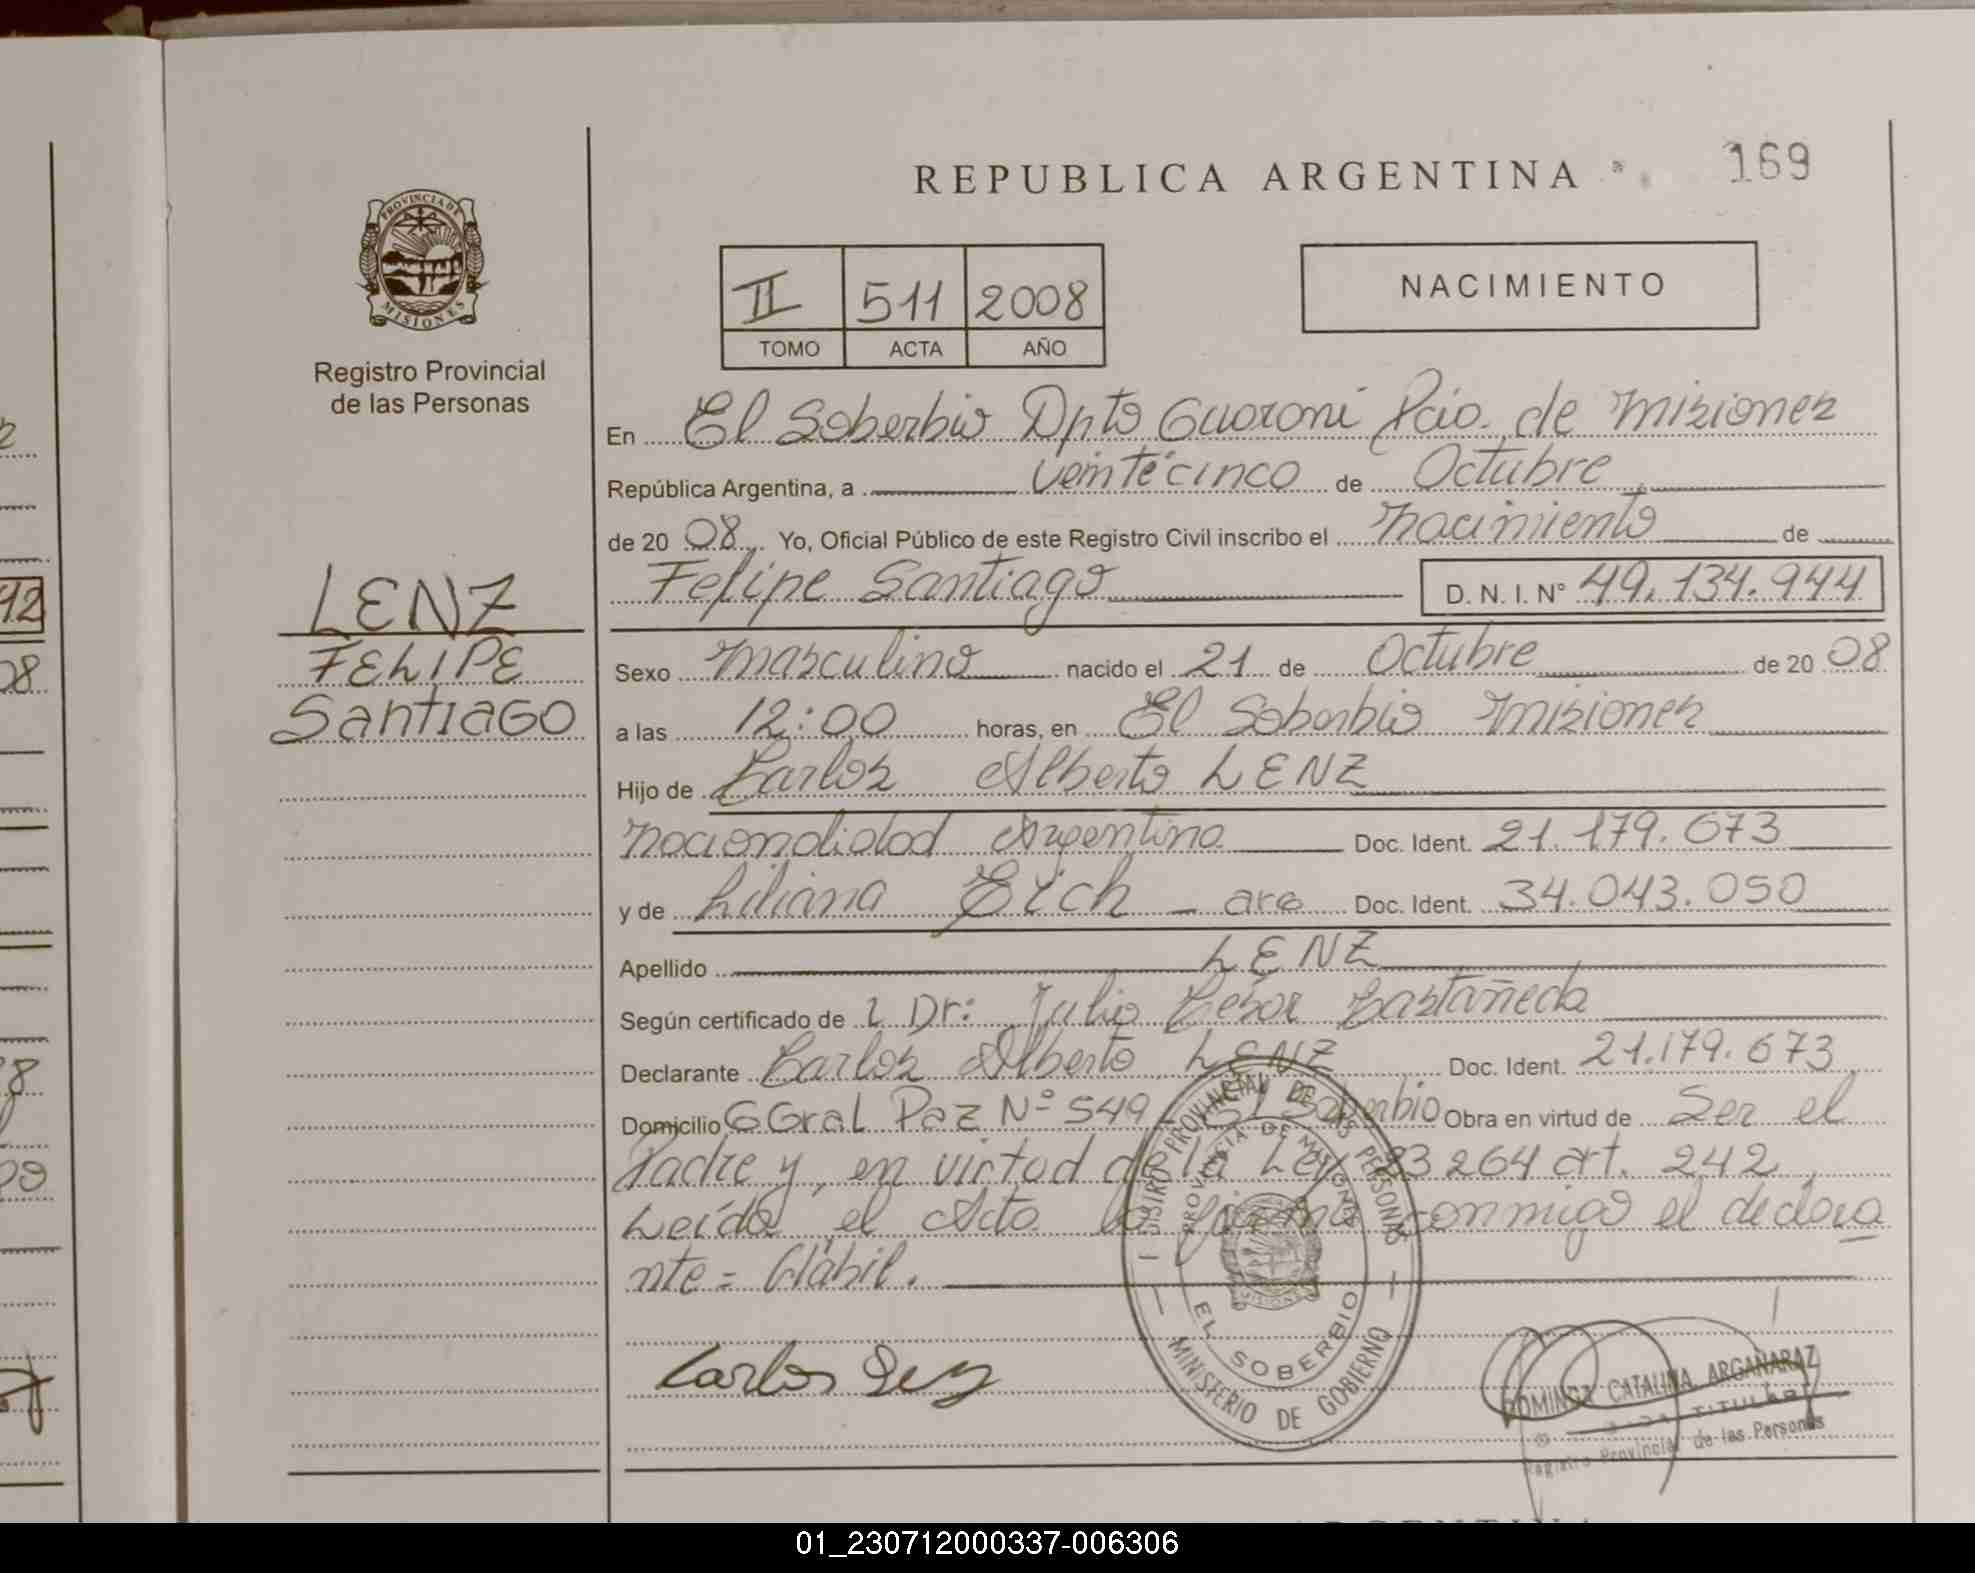 REPUBLICA ARGENTINA
169
PROVINCIA DE MISIONES
Registro Provincial
de las Personas
II 511 2008
TOMO ACTA AÑO
NACIMIENTO
En El Soberbio Dpto Guaraní Pcia. de Misiones
República Argentina, a veinticinco de Octubre
de 2008 Yo, Oficial Público de este Registro Civil inscribo el nacimiento de
Felipe Santiago D. N. I. Nº 49.134.944
LENZ
FELIPE
Santiago
Sexo masculino nacido el 21 de Octubre de 2008
a las 12:00 horas, en El Soberbio Misiones
Hijo de Carlos Alberto LENZ
nacionalidad Argentina Doc. Ident. 21.179.673
y de Liliana Eich - arg Doc. Ident. 34.043.050
Apellido LENZ
Según certificado de Dr: Julio César Castañeda
Declarante Carlos Alberto LENZ Doc. Ident. 21.179.673
Domicilio Gral Paz Nº 549 El Soberbio Obra en virtud de Ser el
Padre y, en virtud de la Ley 23264 art. 242,
Leída el Acta la firma conmigo el declara
nte = Hábil.
REGISTRO PROVINCIAL DE LAS PERSONAS
PROVINCIA DE MISIONES
EL SOBERBIO
MINISTERIO DE GOBIERNO
Carlos Lenz
DOMINGA CATALINA ARGAÑARAZ
TITULAR
Registro Provincial de las Personas
ARGENTINA
01_230712000337-006306